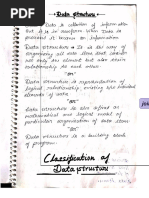 Data structure
Data is collection of information
but it is in random when Data is
processed it known as information.
Data structure is the way of
organizing all data item that consider
not only the element but also their
relationship to each other.
"OR"
Data structure is representation of
logical relationship existing b/w individual
elements of data
"OR"
Data structure is also defined as
mathematical and logical model of
particular organization of data item
"OR"
Data structure is building block
of program
Classification of
Data structure